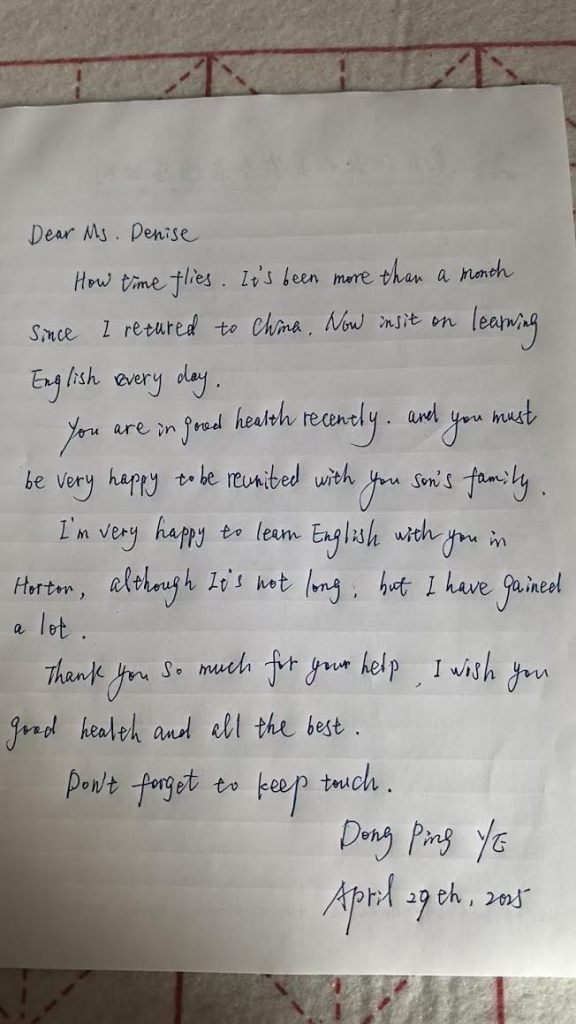 Dear Ms. Denise
How time flies. It's been more than a month
since I retured to China. Now insit on learning
English every day.
You are in good health recently. and you must
be very happy to be reunited with you son's family.
I'm very happy to learn English with you in
Horton, although It's not long, but I have gained
a lot.
Thank you so much for your help, I wish you
good health and all the best.
Don't forget to keep touch.
Dong Ping YE
April 29th, 2025